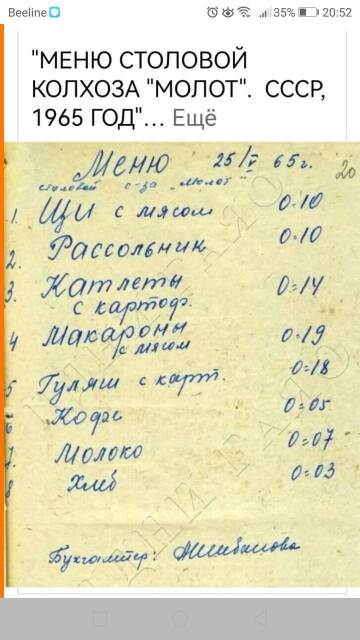 Beeline
35% 20:52
"МЕНЮ СТОЛОВОЙ
КОЛХОЗА "МОЛОТ". СССР,
1965 ГОД"... Ещё
Меню 25/V 65г. 20
столовой с-за "Молот"
1. Щи с мясом 0-10
2. Рассольник 0-10
3. Катлеты 0=14
с картоф.
4 Макароны 0=19
с мясом
5 Гуляш с карт. 0=18
6 Кофе 0=05
7. Молоко 0=07
8 Хлеб 0=03
Бухгалтер: